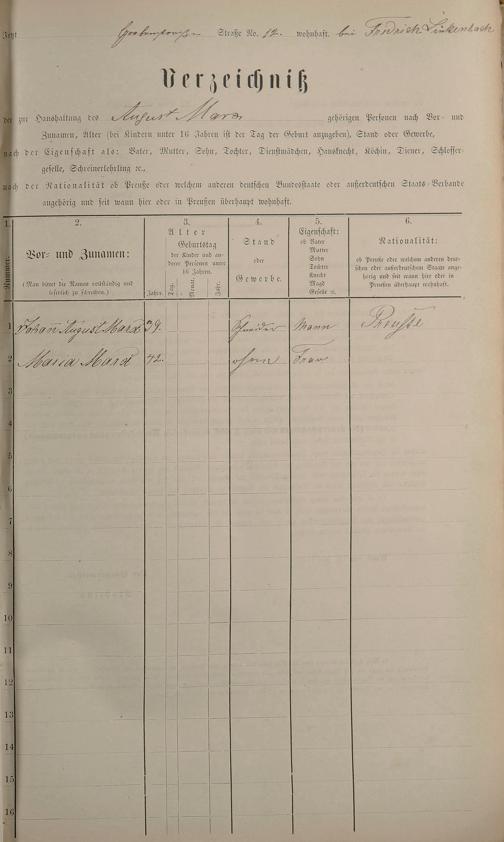 Jetzt Straße No. 12. wohnhaft. bei Friedrich Linkenbach
Verzeichniß
der zur Haushaltung des August Marx gehörigen Personen nach Vor- und
Zunamen, Alter (bei Kindern unter 16 Jahren ist der Tag der Geburt anzugeben), Stand oder Gewerbe,
nach der Eigenschaft als: Vater, Mutter, Sohn, Tochter, Dienstmädchen, Hausknecht, Köchin, Diener, Schlosser-
geselle, Schreinerlehrling ꝛc.,
nach der Nationalität ob Preuße oder welchem anderen deutschen Bundesstaate oder außerdeutschen Staats-Verbande
angehörig und seit wann hier oder in Preußen überhaupt wohnhaft.
1. 2. 3. 4. 5. 6.
Nummer.
Vor- und Zunamen:
(Man bittet die Namen vollständig und
leserlich zu schreiben.)
Alter
Geburtstag
der Kinder und an-
derer Personen unter
16 Jahren.
Jahre. Tag. Monat. Jahr.
Stand
oder
Gewerbe.
Eigenschaft:
ob Vater
Mutter
Sohn
Tochter
Knecht
Magd
Geselle ꝛc.
Nationalität:
ob Preuße oder welchem anderen deut-
schen oder außerdeutschen Staate ange-
hörig und seit wann hier oder in
Preußen überhaupt wohnhaft.
1 Johann August Marx 39. Schneider Mann Preuße
2 Maria Marx 42. ohne Frau
3
4
5
6
7
8
9
10
11
12
13
14
15
16